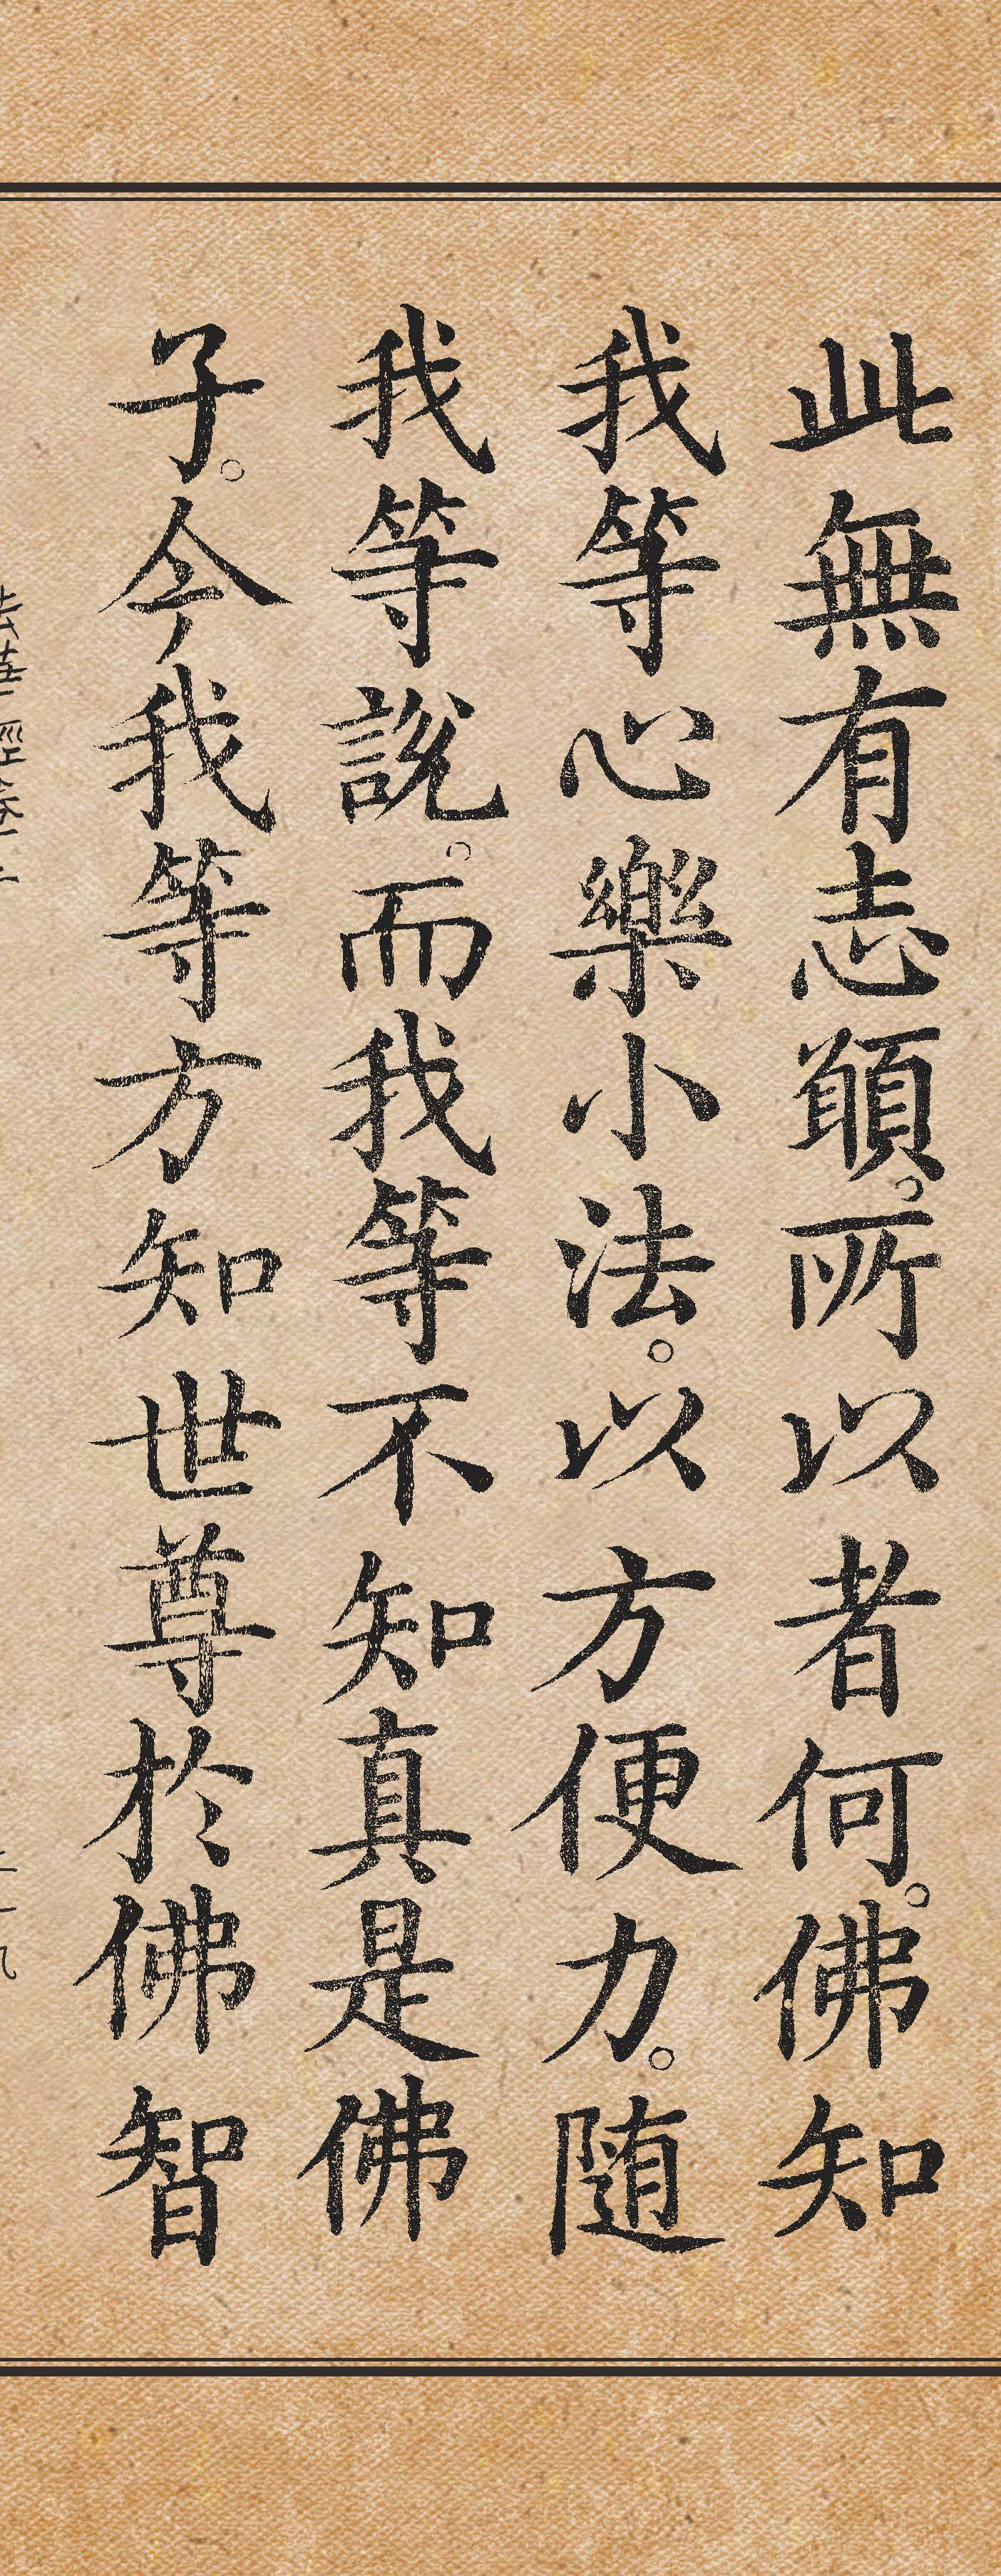 此無有志願。所以者何。佛知
我等心樂小法。以方便力。随
我等說。而我等不知真是佛
子。今我等方知世尊於佛智